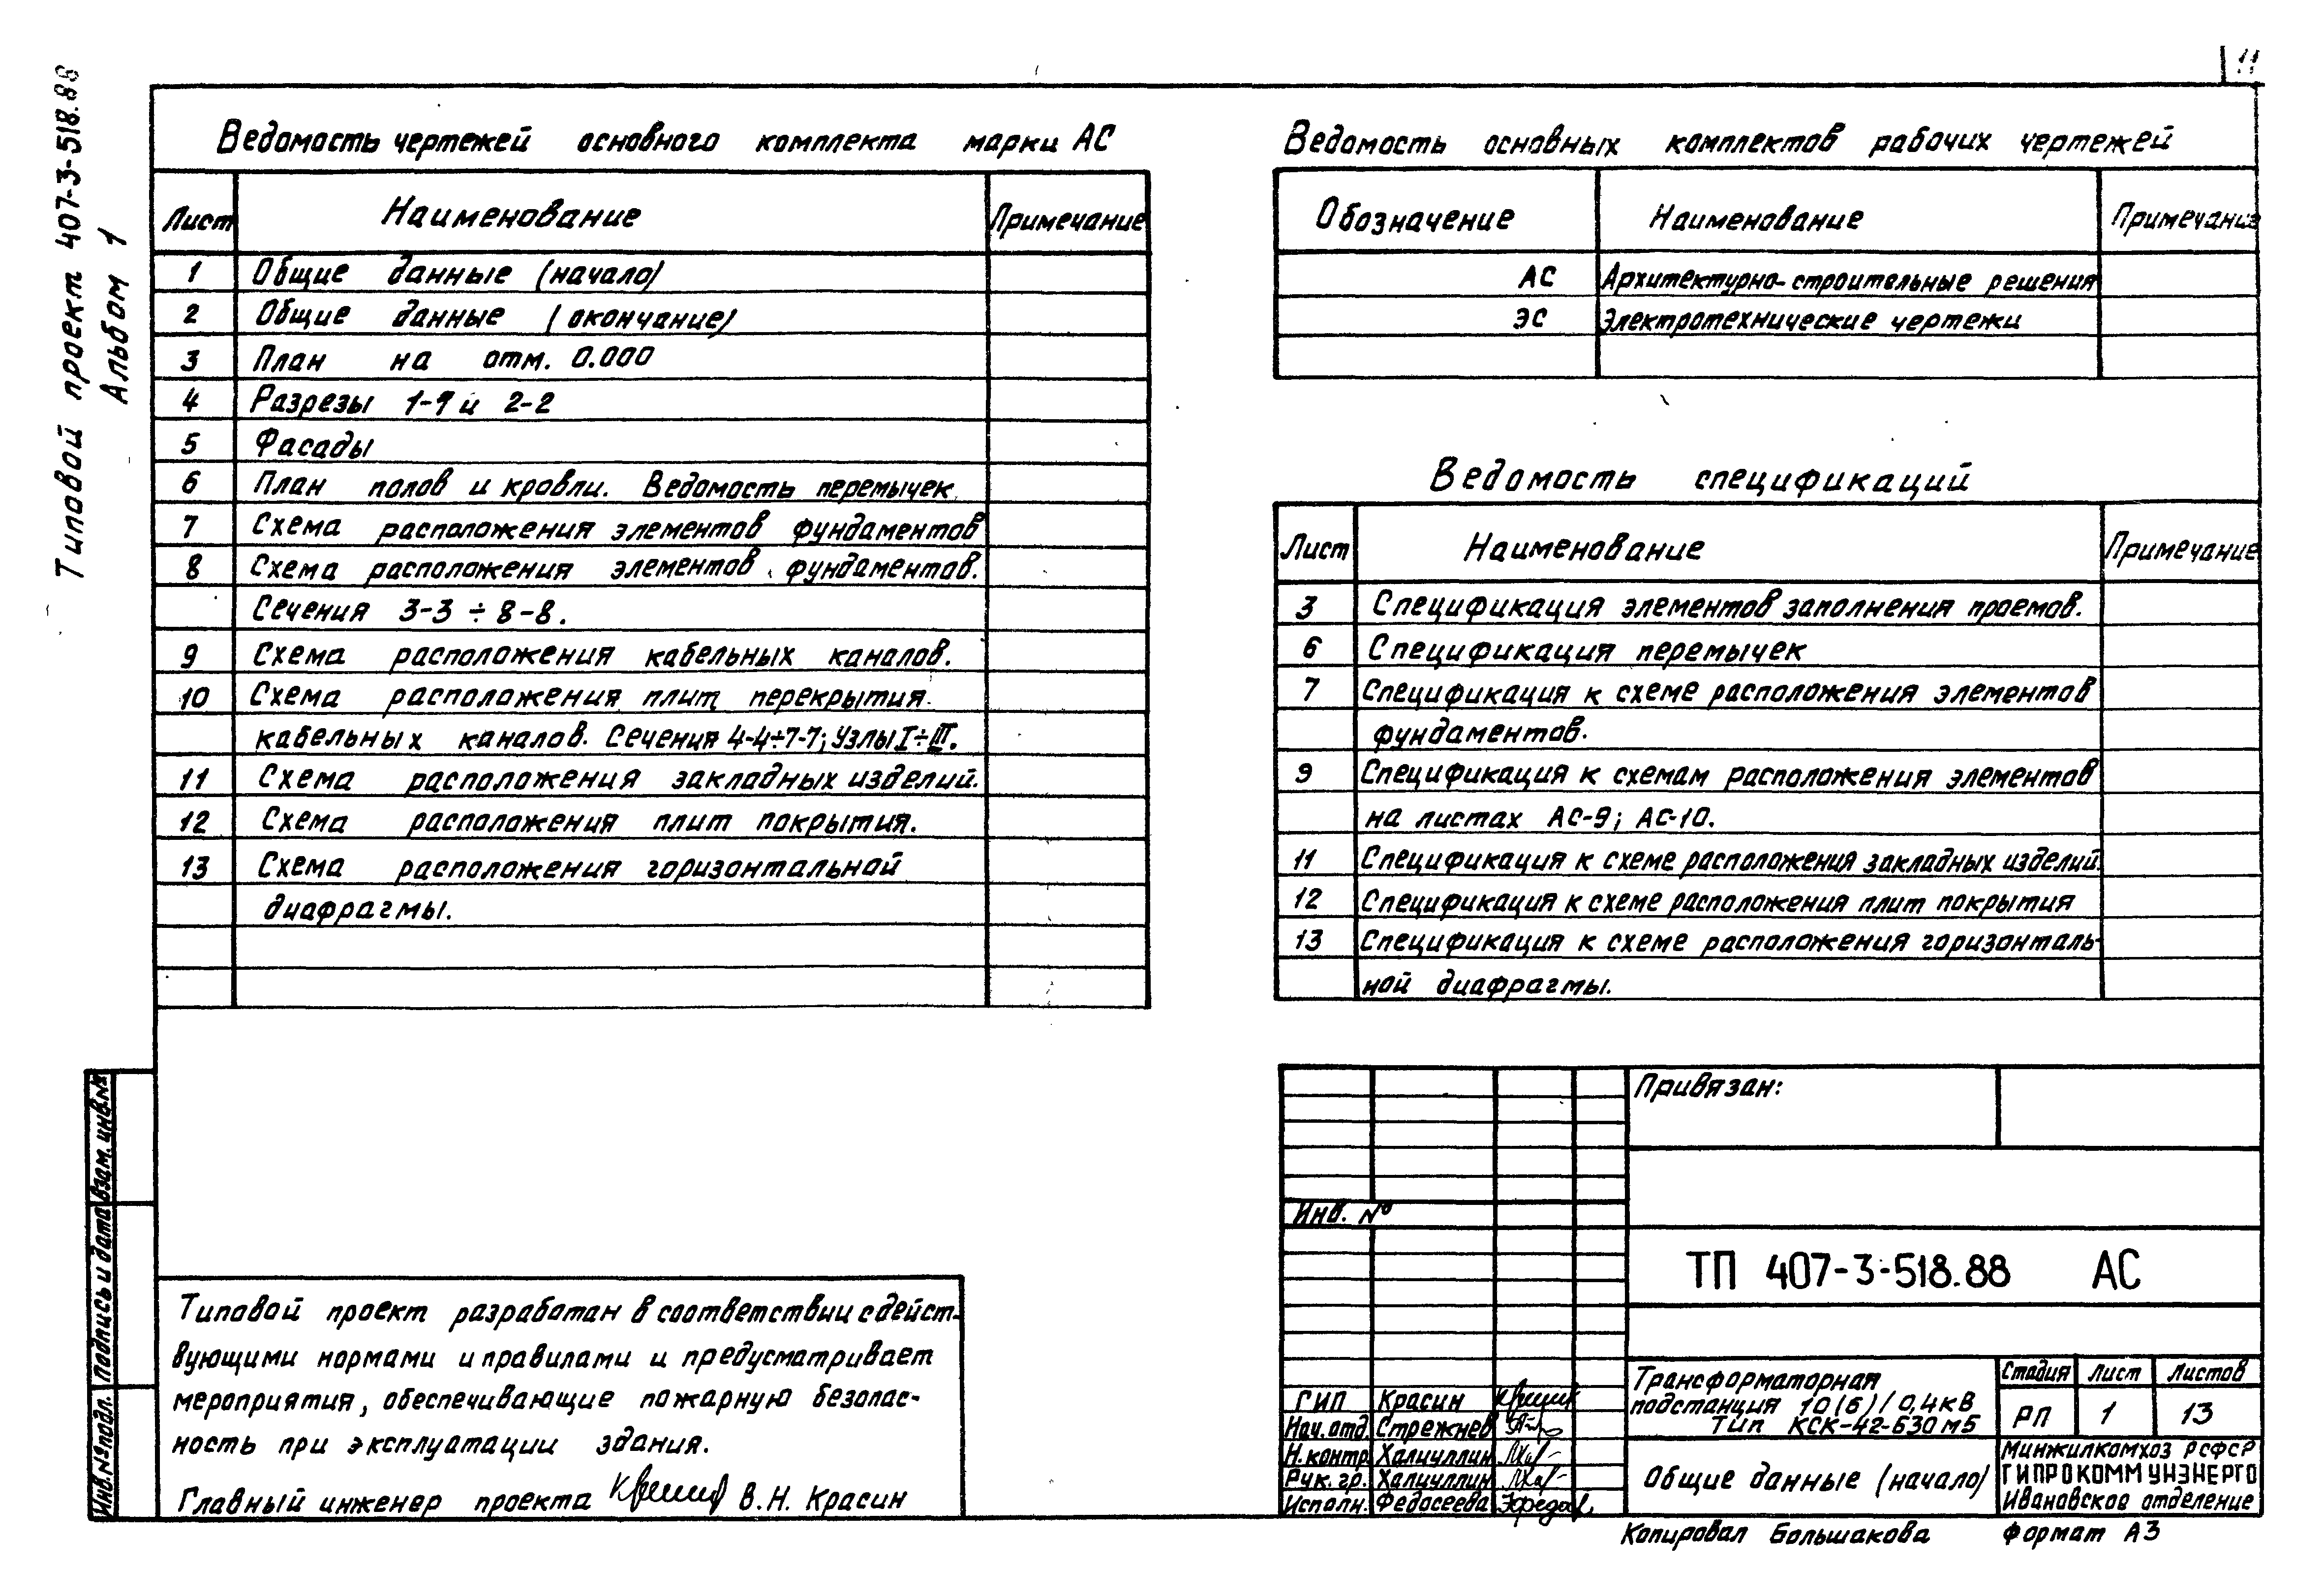 11
Типовой проект 407-3-518.88
Альбом 1
Ведомость чертежей основного комплекта марки АС
Лист Наименование Примечание
1 Общие данные (начало)
2 Общие данные (окончание)
3 План на отм. 0.000
4 Разрезы 1-1 и 2-2
5 Фасады
6 План полов и кровли. Ведомость перемычек
7 Схема расположения элементов фундаментов
8 Схема расположения элементов фундаментов.
Сечения 3-3 ÷ 8-8.
9 Схема расположения кабельных каналов.
10 Схема расположения плит перекрытия
кабельных каналов. Сечения 4-4÷7-7; Узлы I÷III.
11 Схема расположения закладных изделий.
12 Схема расположения плит покрытия.
13 Схема расположения горизонтальной
диафрагмы.
Ведомость основных комплектов рабочих чертежей
Обозначение Наименование Примечание
АС Архитектурно-строительные решения
ЭС Электротехнические чертежи
Ведомость спецификаций
Лист Наименование Примечание
3 Спецификация элементов заполнения проемов.
6 Спецификация перемычек
7 Спецификация к схеме расположения элементов
фундаментов.
9 Спецификация к схемам расположения элементов
на листах АС-9; АС-10.
11 Спецификация к схеме расположения закладных изделий.
12 Спецификация к схеме расположения плит покрытия
13 Спецификация к схеме расположения горизонталь-
ной диафрагмы.
Взам. инв.№
Подпись и дата
Инв.№ подл.
Типовой проект разработан в соответствии с дейст-
вующими нормами и правилами и предусматривает
мероприятия, обеспечивающие пожарную безопас-
ность при эксплуатации здания.
Главный инженер проекта В.Н. Красин
Привязан:
Инв. №
ТП 407-3-518.88 АС
ГИП Красин
Нач. отд. Стрежнев
Н. контр. Халиуллин
Рук. гр. Халиуллин
Исполн. Федосеева
Трансформаторная
подстанция 10(6)/0,4кВ
Тип КСК-42-630 м5
Стадия Лист Листов
РП 1 13
Общие данные (начало)
Минжилкомхоз РСФСР
ГИПРОКОММУНЭНЕРГО
Ивановское отделение
Копировал Большакова Формат А3